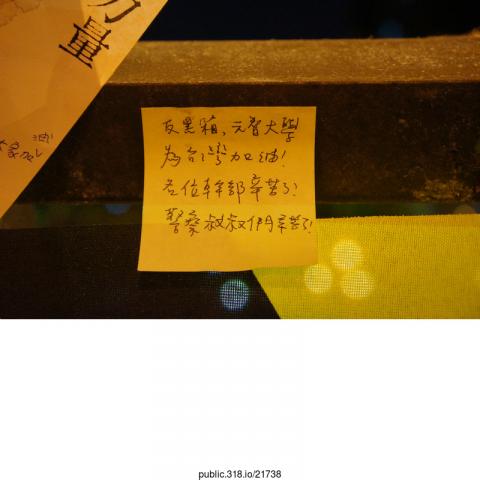 力量
大家加油!
反黑箱,元智大學
為台灣加油!
各位幹部辛苦了!
警察叔叔們辛苦了!
public.318.io/21738